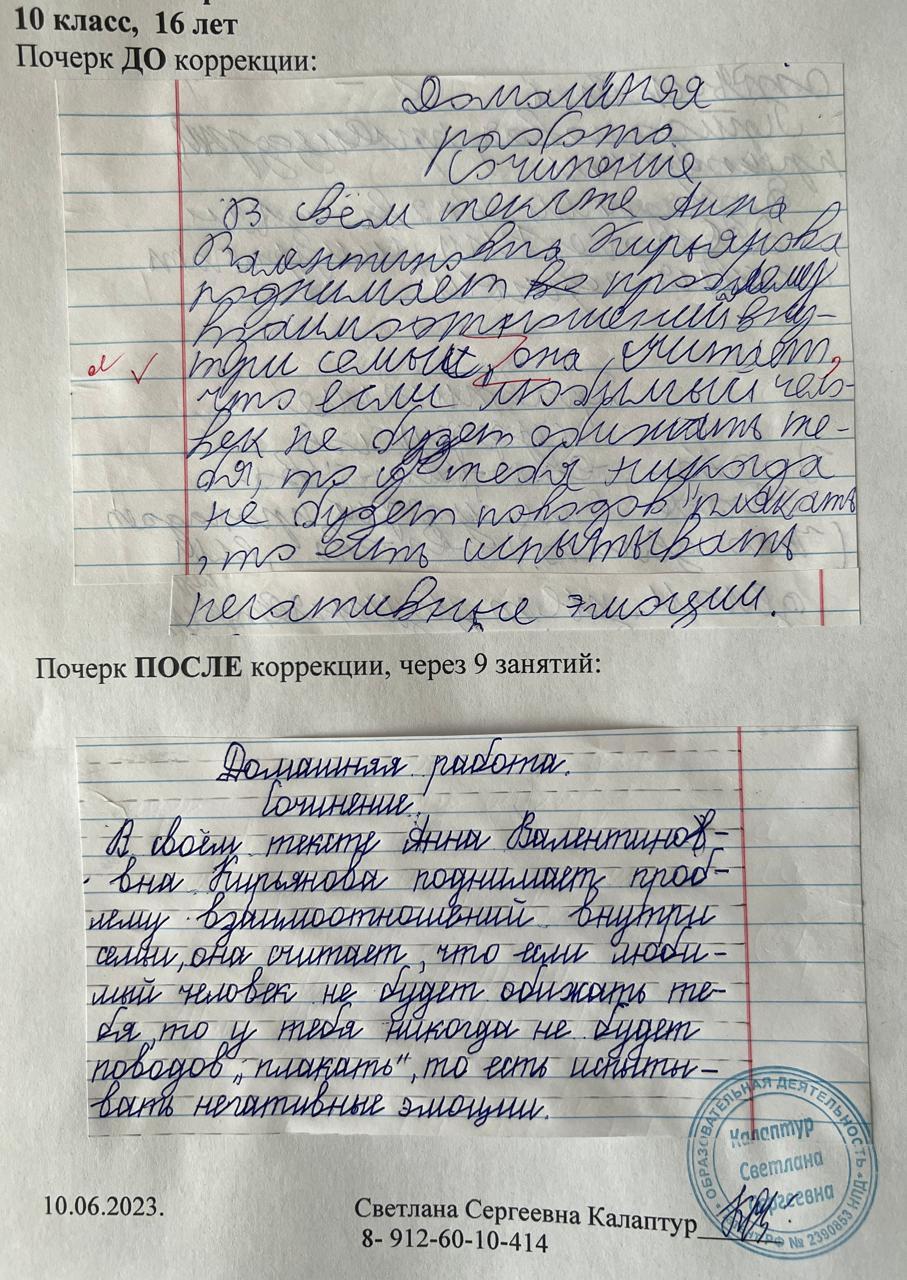 10 класс, 16 лет
Почерк ДО коррекции:
Домашняя
работа
Сочинение
В своём тексте Анна
Валентиновна Кирьянова
поднимает во проблему
взаимоотношений вну-
три семьи, она считает,
что если любимый чело-
век не будет обижать те-
бя, то у тебя никогда
не будет поводов "плакать
, то есть испытывать
негативные эмоции.
Почерк ПОСЛЕ коррекции, через 9 занятий:
Домашняя работа.
Сочинение.
В своём тексте Анна Валентинов-
вна Кирьянова поднимает проб-
лему взаимоотношений внутри
семьи, она считает, что если люби-
мый человек не будет обижать те-
бя, то у тебя никогда не будет
поводов „плакать“, то есть испыты-
вать негативные эмоции.
ОБРАЗОВАТЕЛЬНАЯ ДЕЯТЕЛЬНОСТЬ
Калаптур
Светлана
Сергеевна
РФ № 2390853 НПД
10.06.2023.
Светлана Сергеевна Калаптур
8- 912-60-10-414